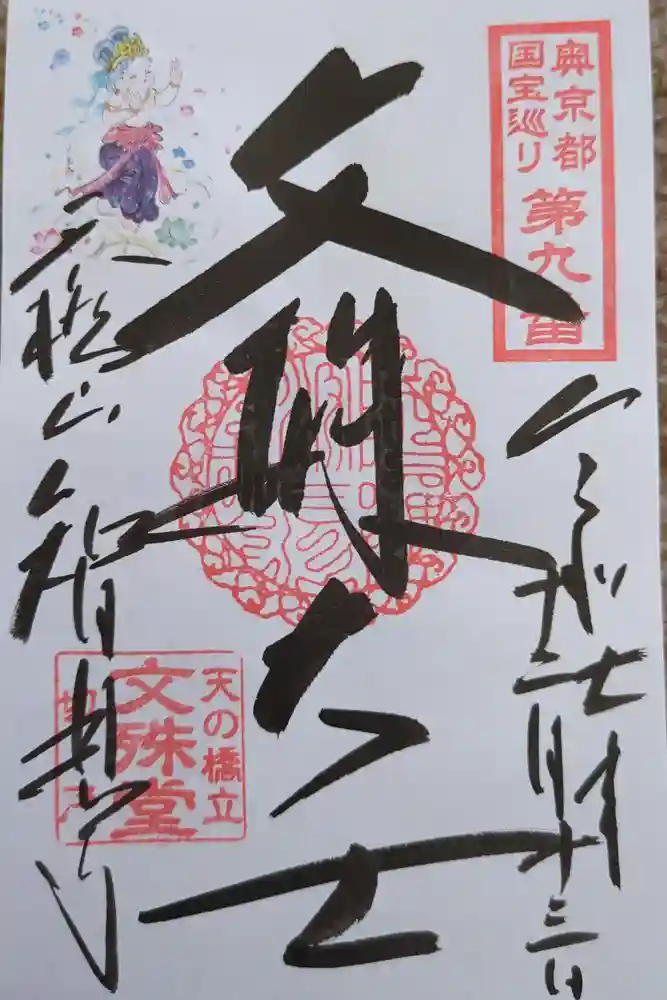 奥京都
国宝巡り 第九番
令和七年
二月十三日
文殊大士
天橋山 智恩寺
天の橋立
文殊堂